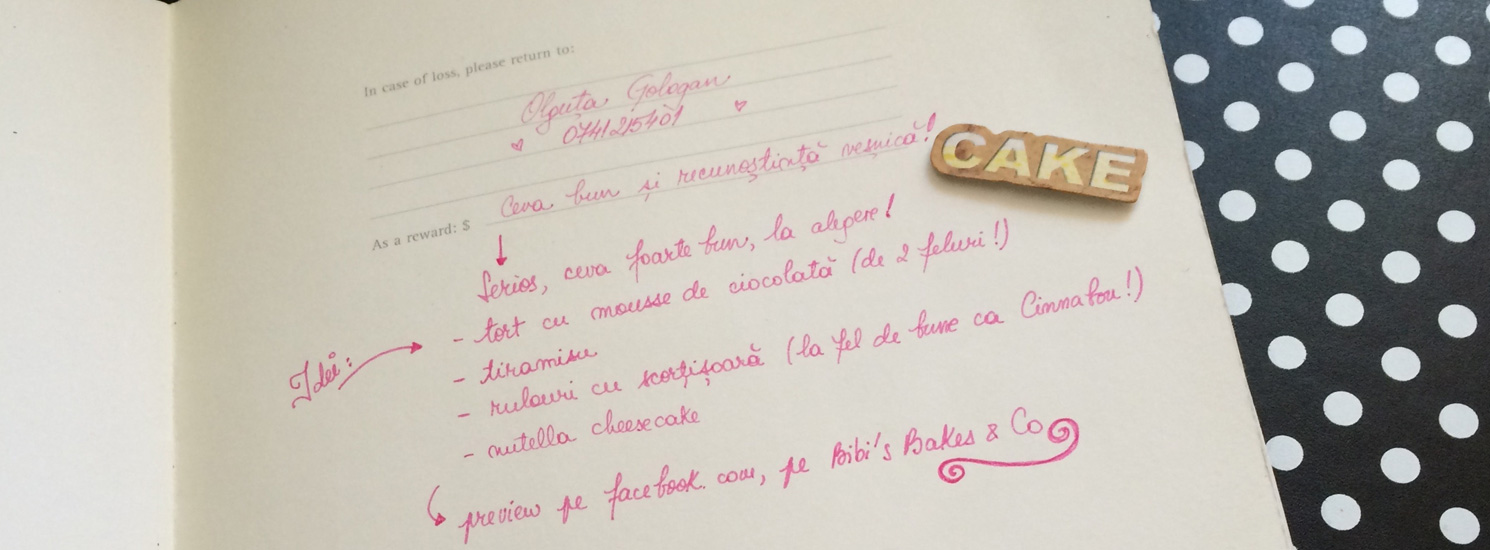 In case of loss, please return to:
Olguța Gologan
0741215401
Ceva bun și recunoștință veșnică!
CAKE
As a reward: $
Serios, ceva foarte bun, la alegere!
Idei:
- tort cu mousse de ciocolată (de 2 feluri!)
- tiramisu
- rulouri cu scorțișoară (la fel de bune ca Cinnabon!)
- nutella cheesecake
preview pe facebook.com, pe Bibi's Bakes & Co